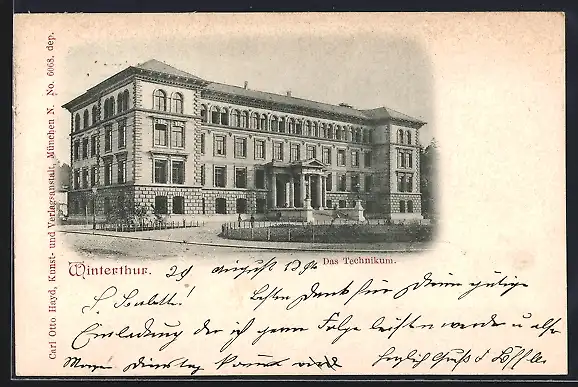 Carl Otto Hayd, Kunst- und Verlagsanstalt, München N. No. 6068. dep.
Winterthur.
Das Technikum.
29 August
Besten Dank für Deine gütige
Einladung der ich gern Folge leisten werde u also
Morgen Dienstag komme
Herzlich Gruß